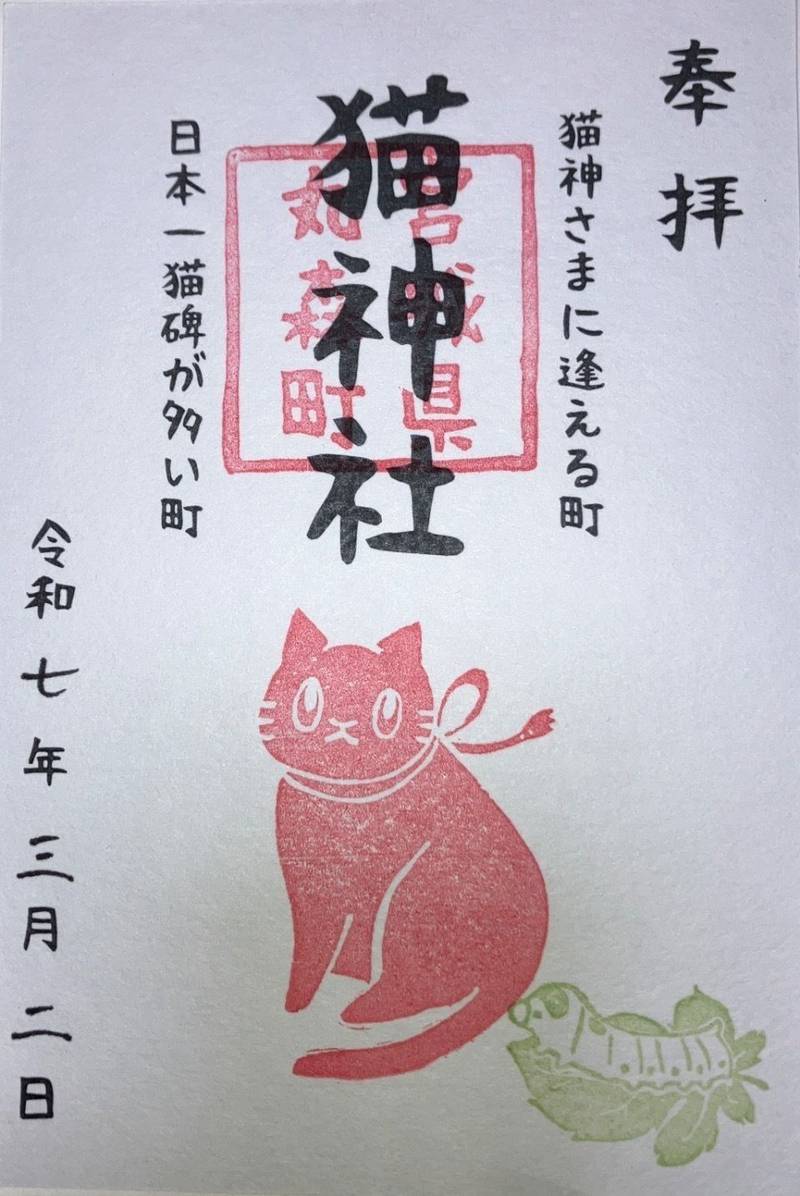 奉拝
猫神さまに逢える町
猫神社
宮城県
丸森町
日本一猫碑が多い町
令和七年三月二日